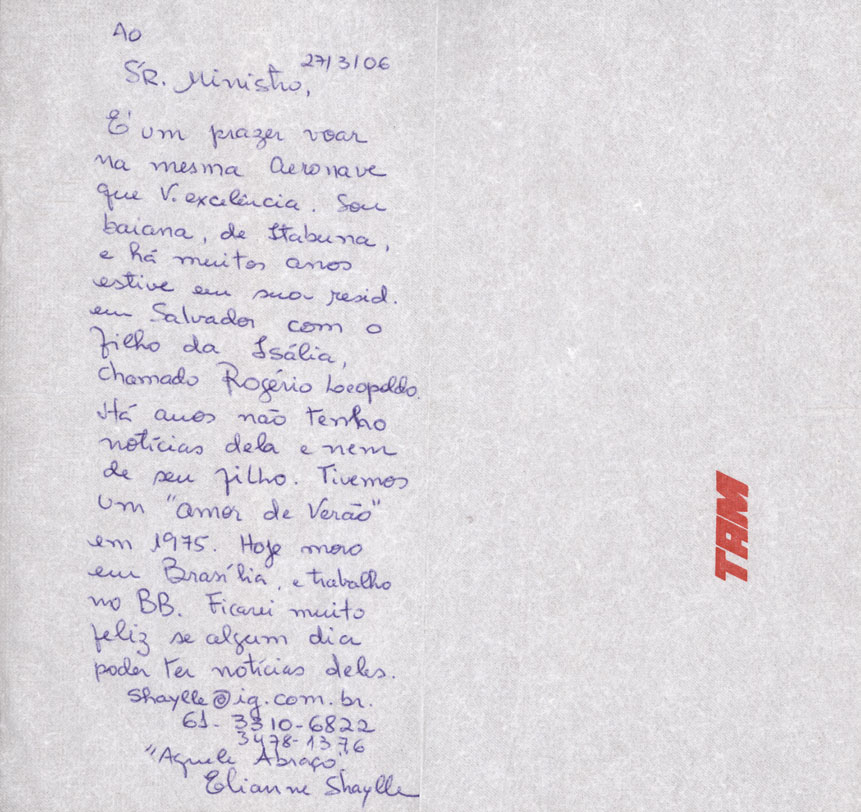 Ao
27/3/06
SR. Ministro,
É um prazer voar
na mesma aeronave
que V. excelência. Sou
baiana, de Itabuna,
e há muitos anos
estive em sua resid.
em Salvador com o
filho da Isália,
chamado Rogério Leopoldo.
Há anos não tenho
notícias dela e nem
de seu filho. Tivemos
um "amor de Verão"
em 1975. Hoje moro
em Brasília, e trabalho
no BB. Ficarei muito
feliz se algum dia
poder ter notícias deles.
shaylle@ig.com.br.
61- 3310-6822
3478-1376
"Aquele Abraço,
Elianne Shaylle
TAM